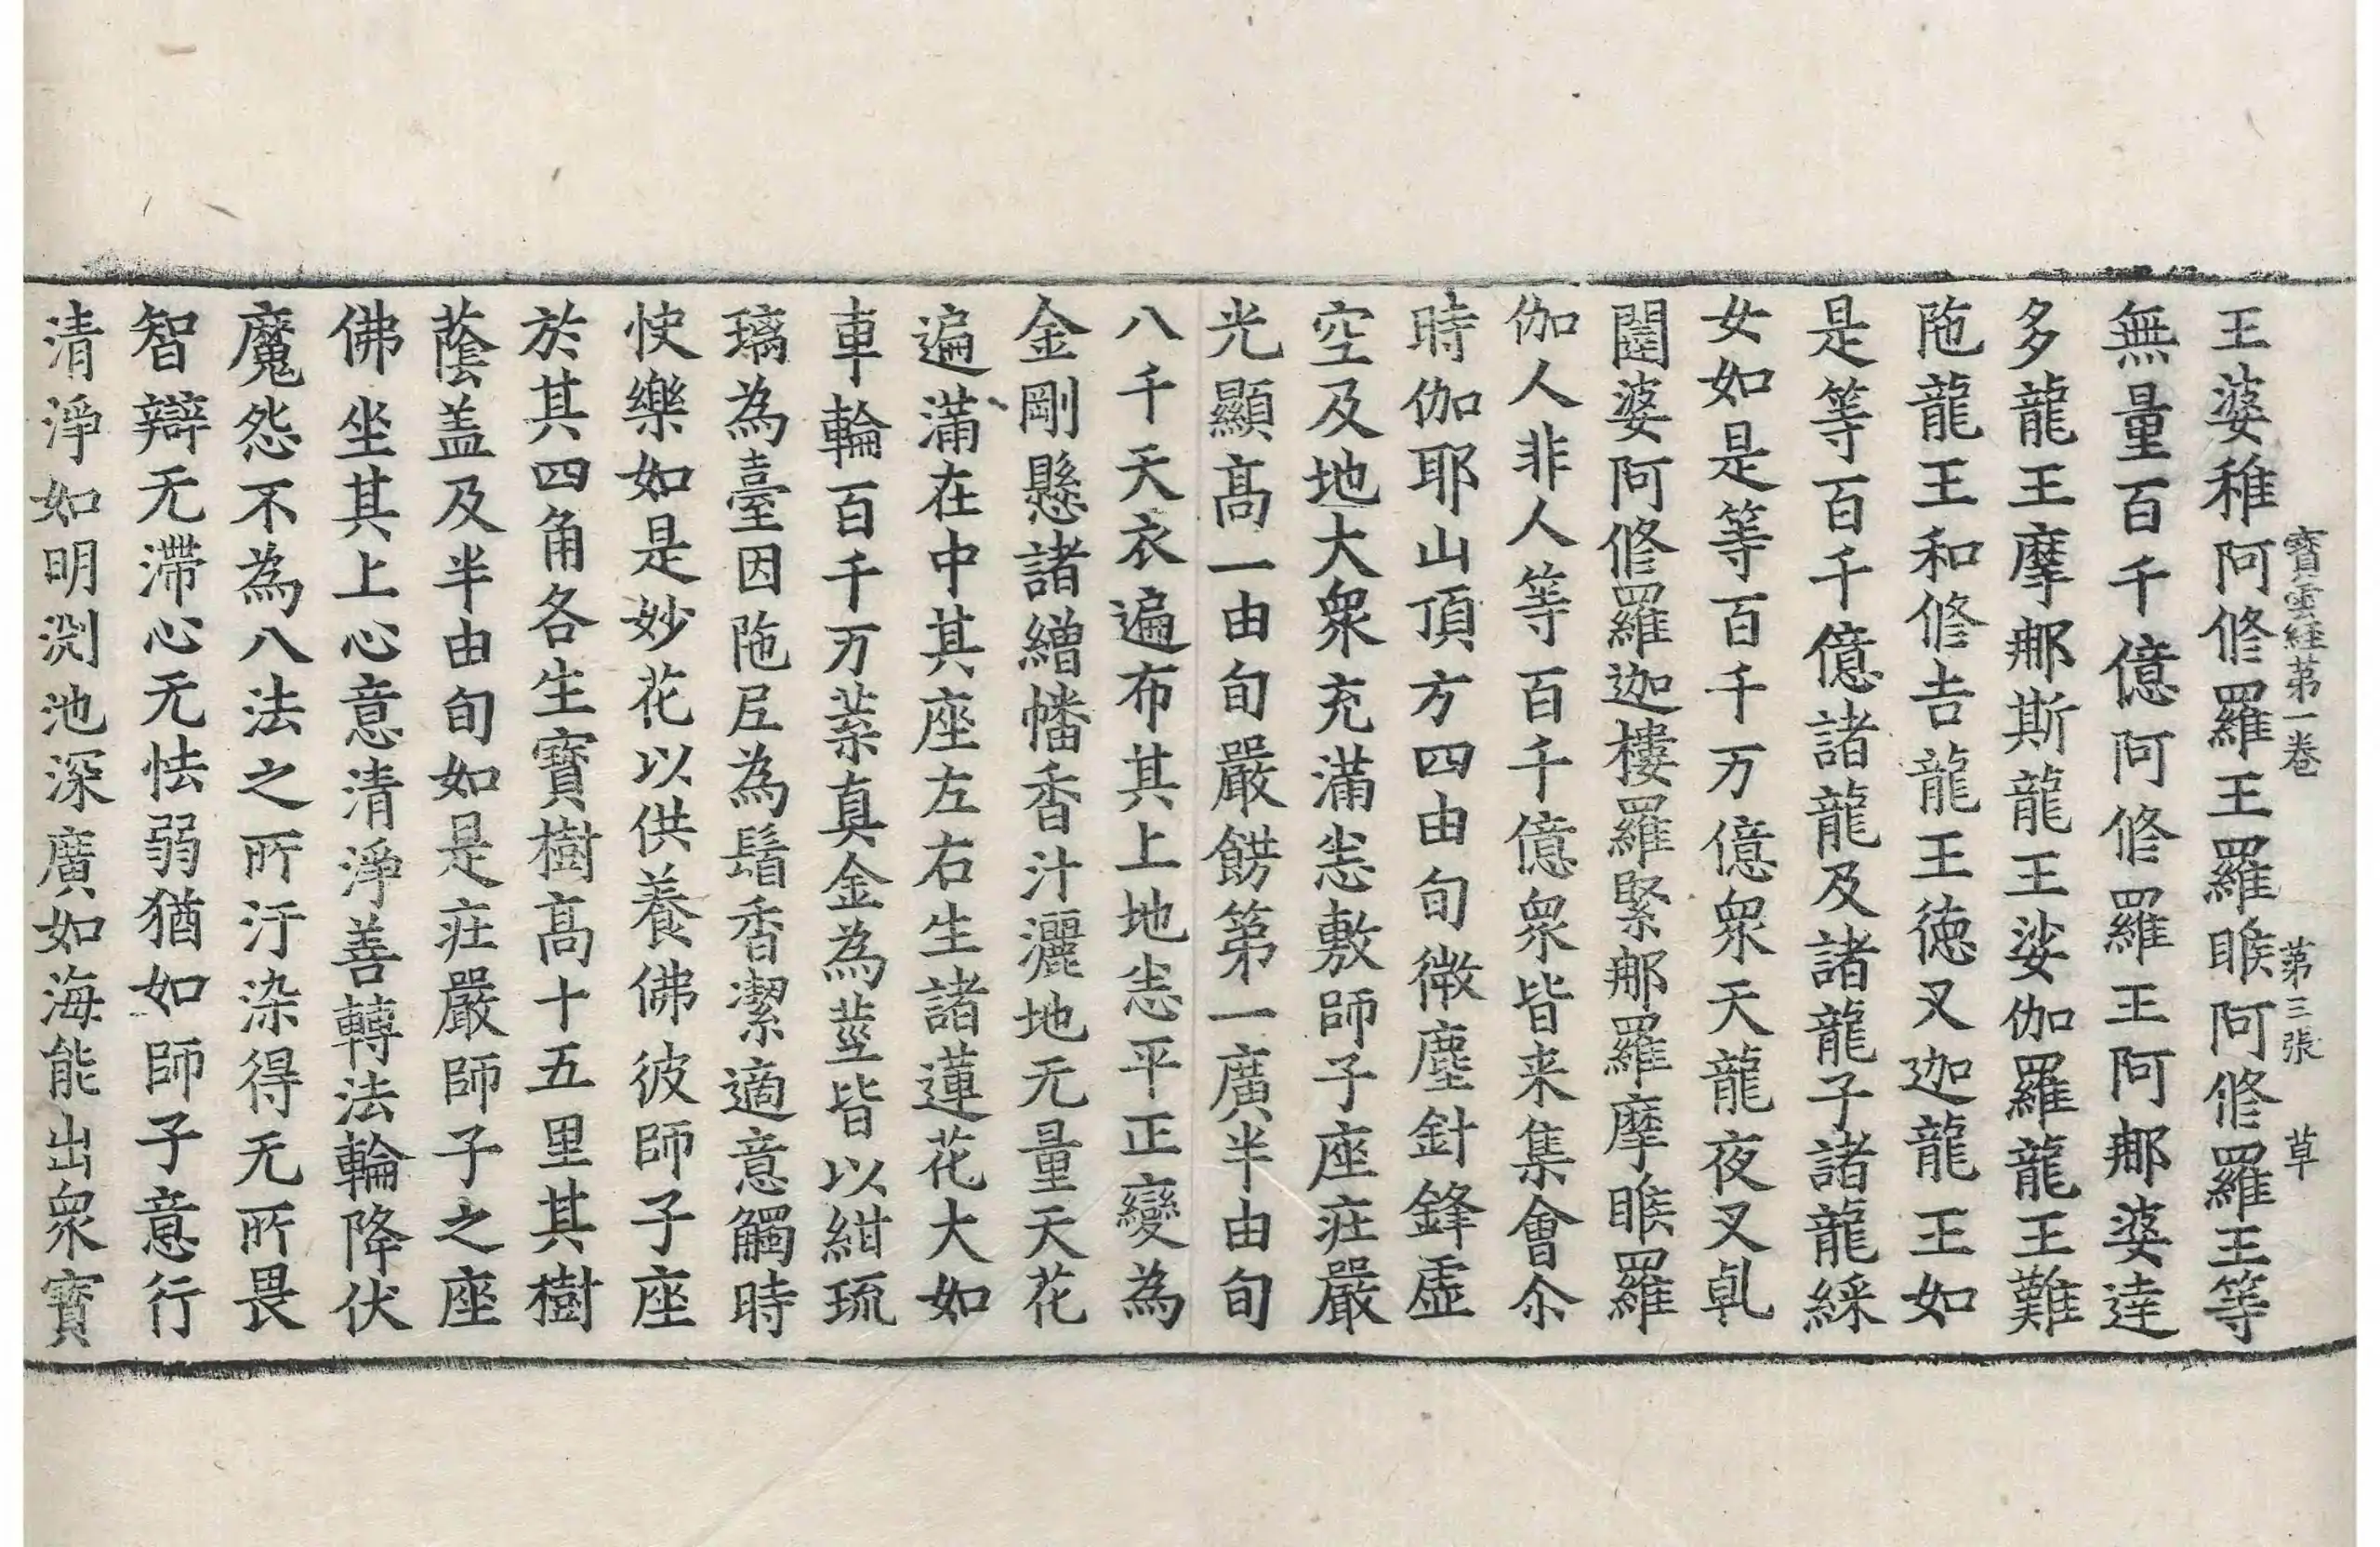 寶雲経苐一卷 苐三張 草
王婆稚阿修羅王羅睺阿修羅王等
無量百千億阿修羅王阿那婆達
多龍王摩那斯龍王娑伽羅龍王難
陁龍王和修吉龍王德叉迦龍王如
是等百千億諸龍及諸龍子諸龍綵
女如是等百千万億衆天龍夜叉乹
闥婆阿修羅迦樓羅緊那羅摩睺羅
伽人非人等百千億衆皆来集會尒
時伽耶山頂方四由旬微塵針鋒虛
空及地大衆充滿恙敷師子座庄嚴
光顯髙一由旬嚴餝第一廣半由旬
八千天衣遍布其上地恙平正變為
金剛懸諸繒幡香汁灑地无量天花
遍滿在中其座左右生諸蓮花大如
車輪百千万葉真金為莖皆以紺琉
璃為臺因陁𡰱為鬚香潔適意觸時
快樂如是妙花以供養佛彼師子座
於其四角各生寶樹髙十五里其樹
蔭盖及半由旬如是庄嚴師子之座
佛坐其上心意清淨善轉法輪降伏
魔怨不為八法之所汙染得无所畏
智辯无滯心无怯弱猶如師子意行
清淨如明渕池深廣如海能出衆寶